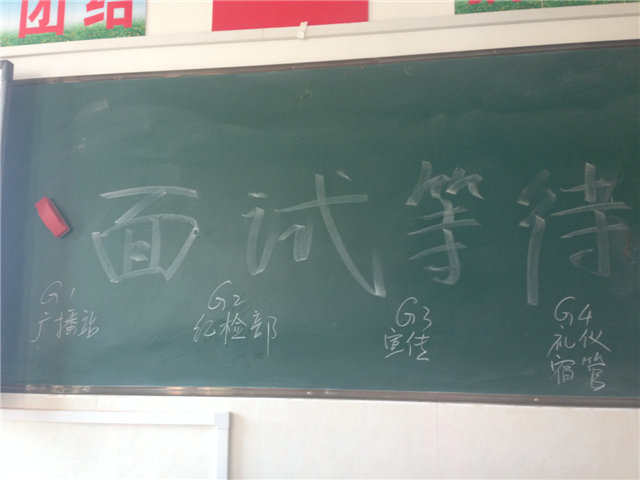 团结
面试等待
G1
广播站
G2
纪检部
G3
宣传
G4
礼仪
宿管